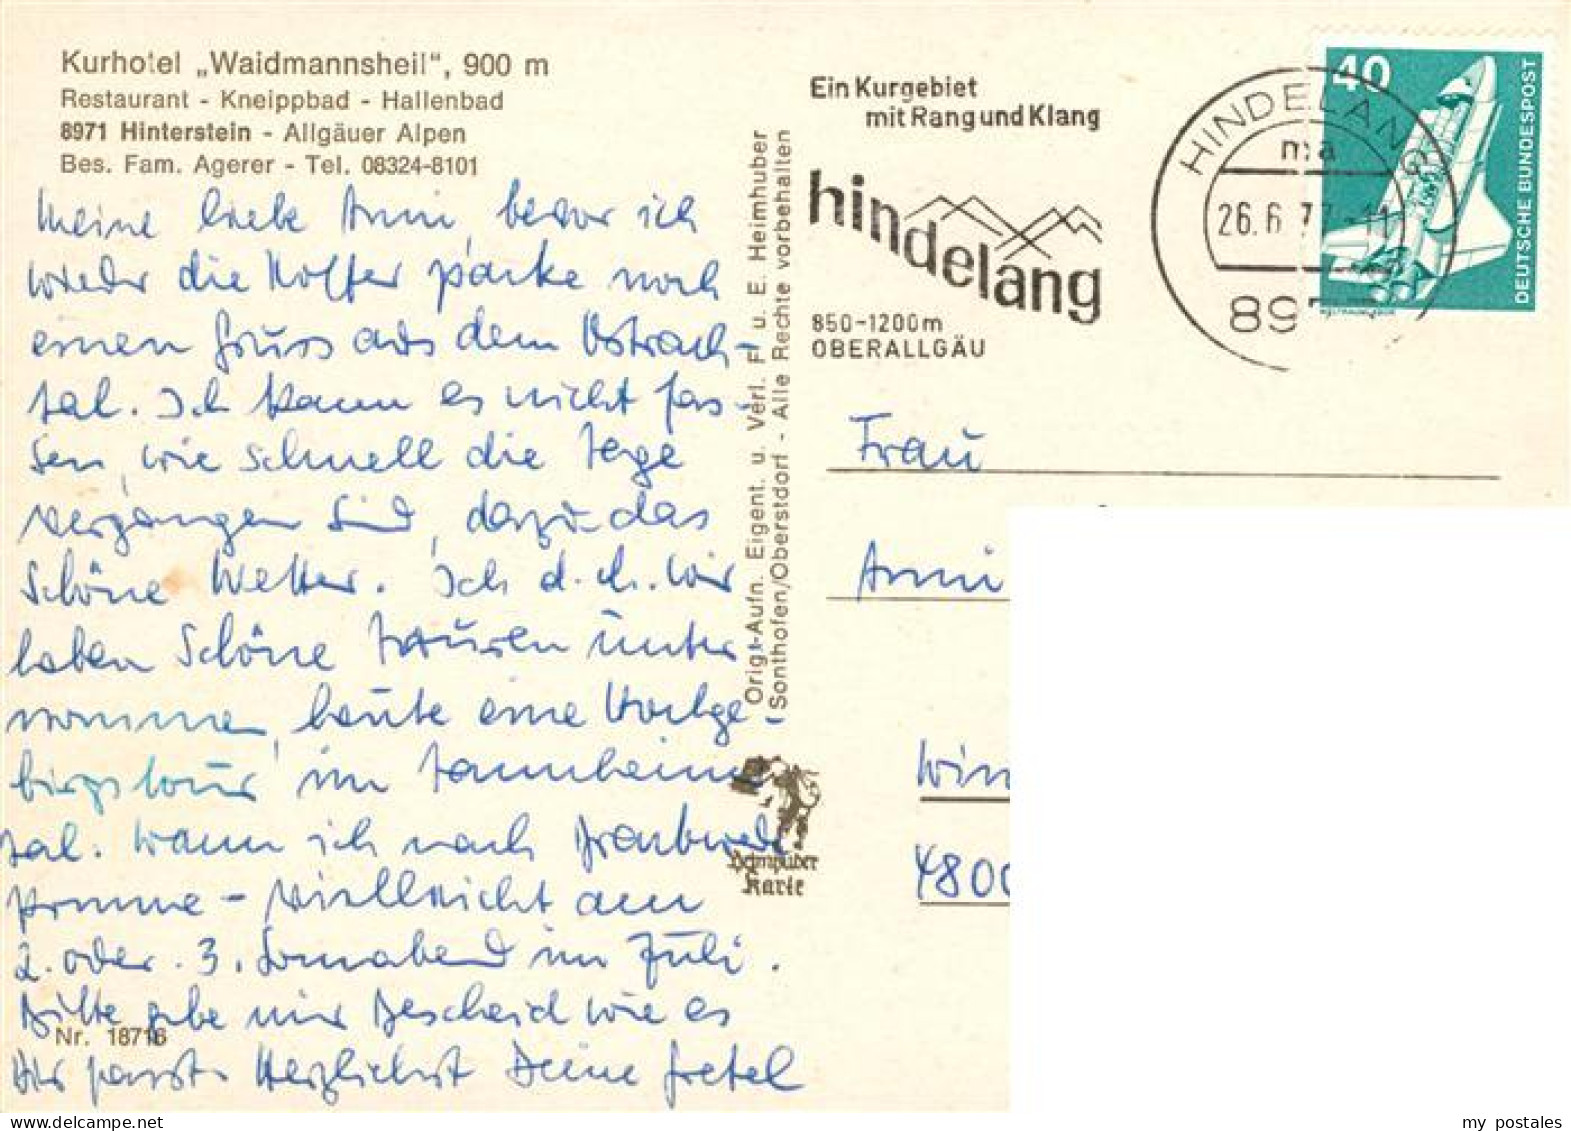 Kurhotel „Waidmannsheil“, 900 m
Restaurant - Kneippbad - Hallenbad
8971 Hinterstein - Allgäuer Alpen
Bes. Fam. Agerer - Tel. 08324-8101
Meine liebe Anni, bevor ich
wieder die Koffer packe noch
einen Gruss aus dem Ostrach-
tal. Ich kann es nicht fas-
sen, wie schnell die Tage
vergangen sind, dazu das
schöne Wetter. Ich d.h. wir
haben schöne Touren unter
nommen, heute eine Hochge-
birgstour im Tannheimer
tal. Wann ich nach Brackwede
komme - vielleicht am
2. oder 3. Sonnabend im Juli.
Bitte gebe mir Bescheid wie es
Dir passt. Herzlichst Deine Gretel
Nr. 18716
Origl-Aufn. Eigent. u. Verl. F. u. E. Heimhuber
Sonthofen/Oberstdorf - Alle Rechte vorbehalten
Heimhuber
Karte
Ein Kurgebiet
mit Rang und Klang
hindelang
850-1200m
OBERALLGÄU
HINDELANG
ma
26.6.77-11
897
40
DEUTSCHE BUNDESPOST
Frau
Anni
Win
4800
my_postales